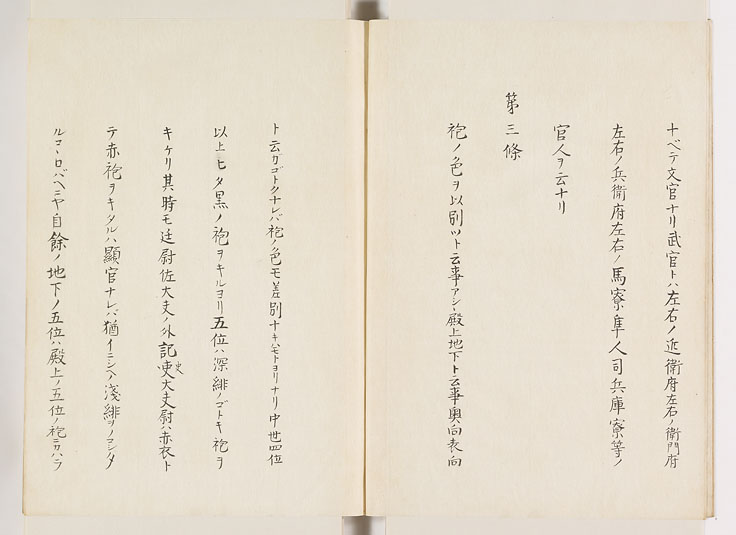 ナベテ文官ナリ武官トハ左右ノ近衛府左右ノ衛門府
左右ノ兵衛府左右ノ馬寮隼人司兵庫寮等ノ
官人ヲ云ナリ
第三條
袍ノ色ヲ以別ツト云事アシ、殿上地下ト云事奥向表向
ト云ガゴトクナレバ袍ノ色モ差別ナキハモトヨリナリ中世四位
以上ヒタ黒ノ袍ヲキルヨリ五位ハ深緋ノゴトキ袍ヲ
キケリ其時モ廷尉佐大夫ノ外記吏史大夫尉ハ赤衣ト
テ赤袍ヲキタルハ顯官ナレバ猶イニシヘノ淺緋ヲノコシタ
ルコヽロバヘニヤ自餘ノ地下ノ五位ハ殿上ノ五位ノ袍ニカハラ